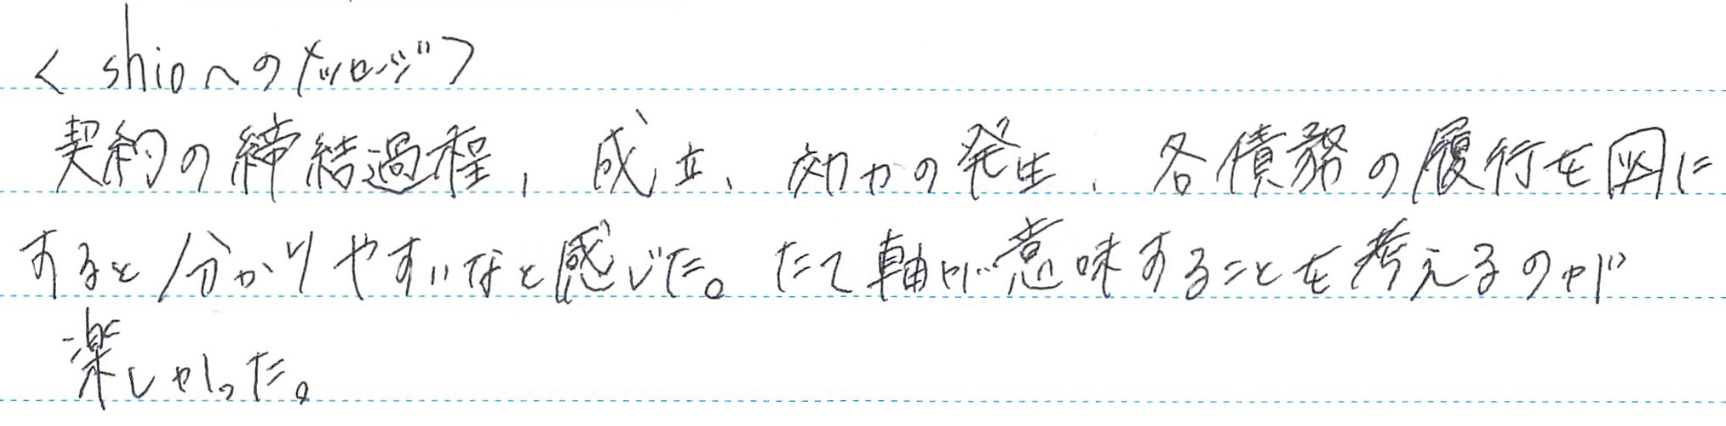 < shioへのメッセージ>
契約の締結過程，成立、効力の発生、各債務の履行を図に
すると分かりやすいなと感じた。たて軸が意味することを考えるのが
楽しかった。